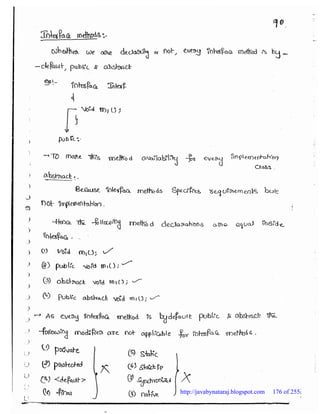 90
Interface methods :-
Whether we are declaring or not, every interface method is by
-default, public & abstract
Eg:- interface Interf
{
void m1();
}
public :-
→ TO make this method availability for every implementation
class.
abstract :-
Because interface methods specifies requirements but
not implementation.
-Hence the following method declarations are equal inside
interface.
(1) void m1(); ✓
(2) public void m1(); ✓
(3) abstract void m1(); ✓
(4) public abstract void m1(); ✓
→ As every interface method is by default public & abstract the
-following modifiers are not applicable for interface methods.
(1) private
(2) protected
(3) <default>
(4) final
(5) static
(6) strictfp
(7) synchronized
(8) native
http://javabynataraj.blogspot.com 176 of 255